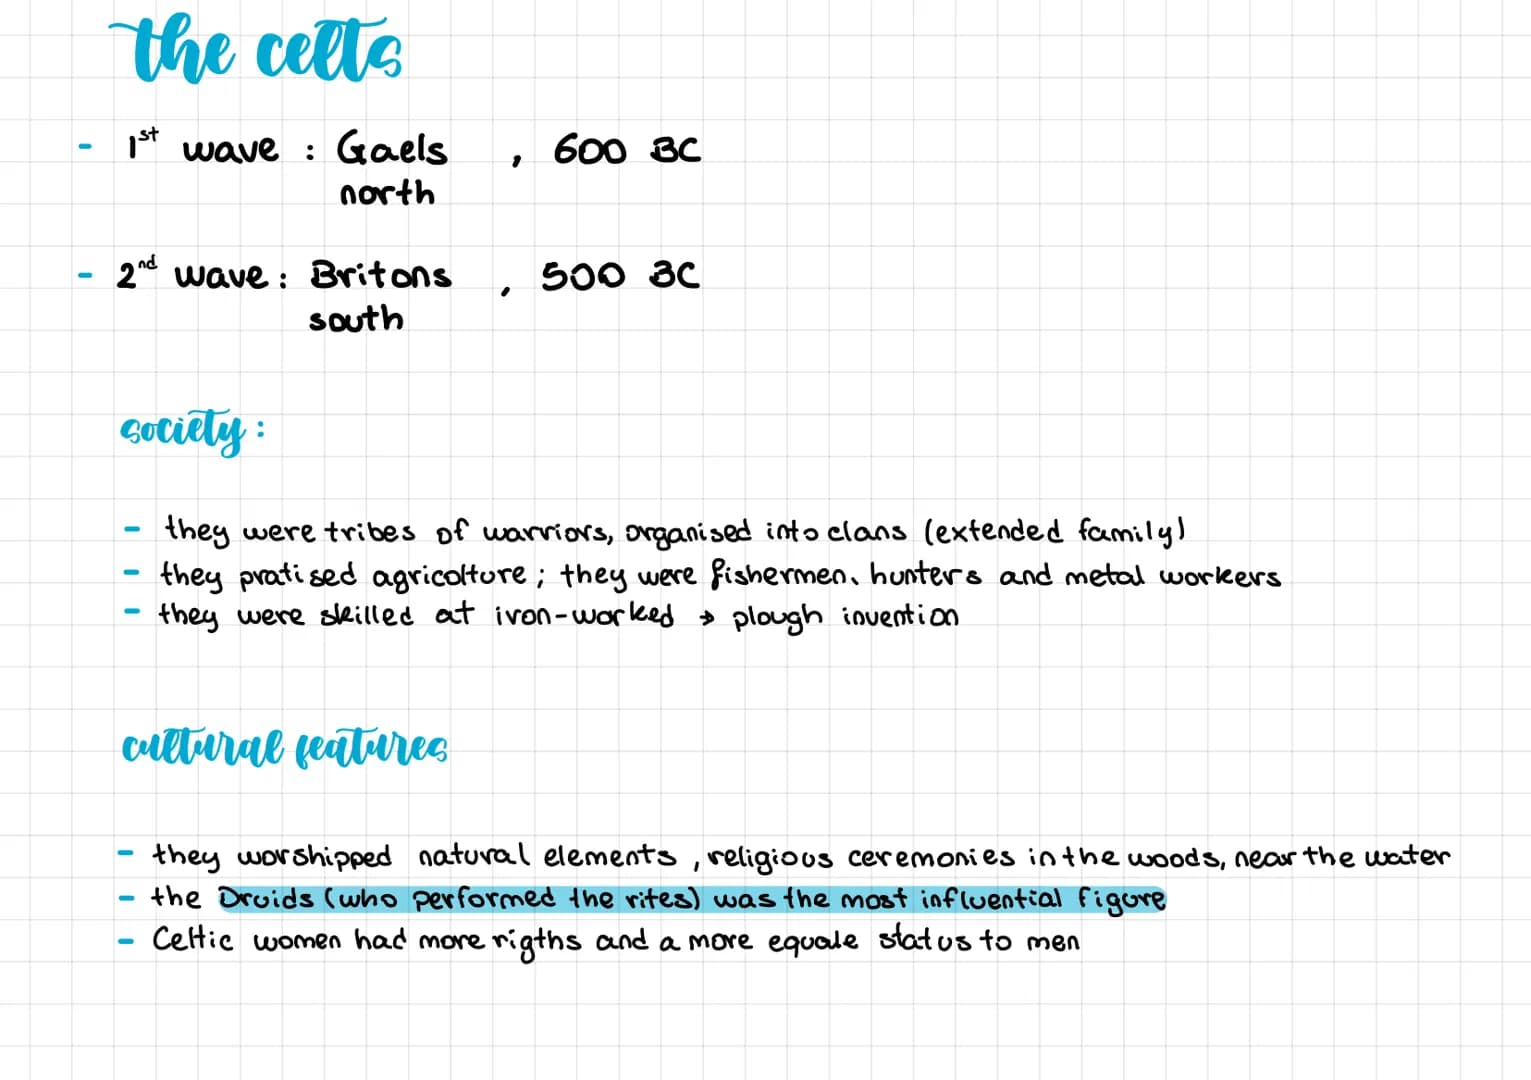 the celts
- 1st wave : Gaels , 600 BC
north
- 2nd wave : Britons , 500 BC
south
society :
- they were tribes of warriors, organised into clans (extended family)
- they pratised agricolture ; they were fishermen, hunters and metal workers
- they were skilled at iron-worked → plough invention
cultural features
- they worshipped natural elements , religious ceremonies in the woods, near the water
- the Druids (who performed the rites) was the most influential figure
- Celtic women had more rigths and a more equale status to men